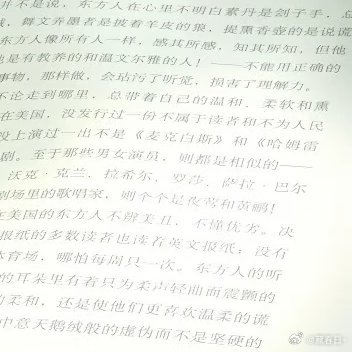 并不是说，东方人在心里不明白素丹是刽子手，总
贼，舞文弄墨者是披着羊皮的狼，提熏香壶的是说谎
东方人像所有人一样，感其所感，知其所知，但他
他是有教养的和温文尔雅的人！——不能用正确的
事物，那样做，会玷污了听觉，损害了理解力。
不论走到哪里，总带着自己的温和、柔软和熏
在美国，没发行过一份不属于读者和不为人民
没上演过一出不是《麦克白斯》和《哈姆雷
剧。至于那些男女演员，则都是相似的——
、沃克·克兰、拉希尔、罗莎、萨拉·巴尔
剧场里的歌唱家，则个个是夜莺和黄鹂！
在美国的东方人不辩美丑，不懂优劣。决
报纸的多数读者也读着英文报纸；没有
体育场，哪怕每周只一次。东方人的听
的耳朵里有着只为柔声轻曲而震颤的
的柔和，还是使他们更喜欢温柔的谎
中意天鹅绒般的虚伪而不是坚硬的